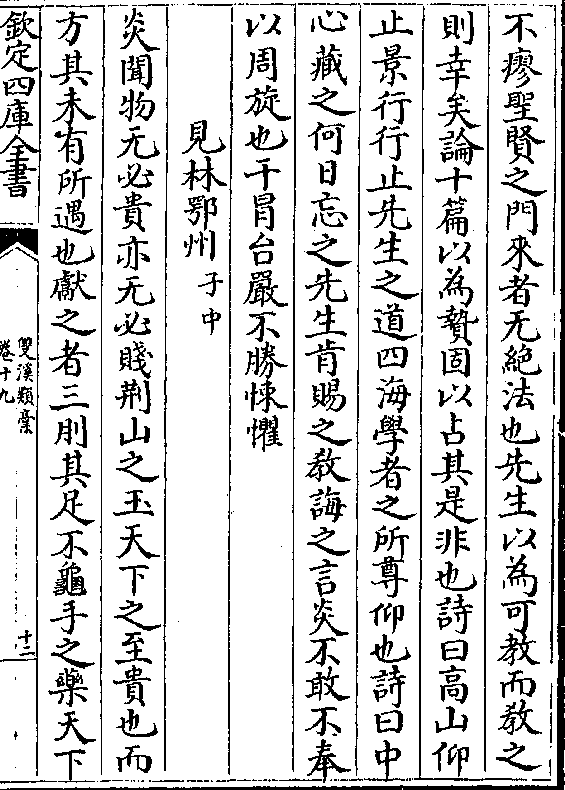 不廖聖賢之門來者无絶法也先生以為可教而教之
則幸矣論十篇以為贄固以占其是非也詩曰高山仰
止景行行止先生之道四海學者之所尊仰也詩曰中
心藏之何日忘之先生肯賜之教誨之言炎不敢不奉
以周旋也干冒台嚴不勝悚懼
見林鄂州子中
炎聞物无必貴亦无必賤荆山之玉天下之至貴也而
方其未有所遇也獻之者三刖其足不龜手之藥天下
欽定四庫全書
雙溪類藁
卷十九
十二